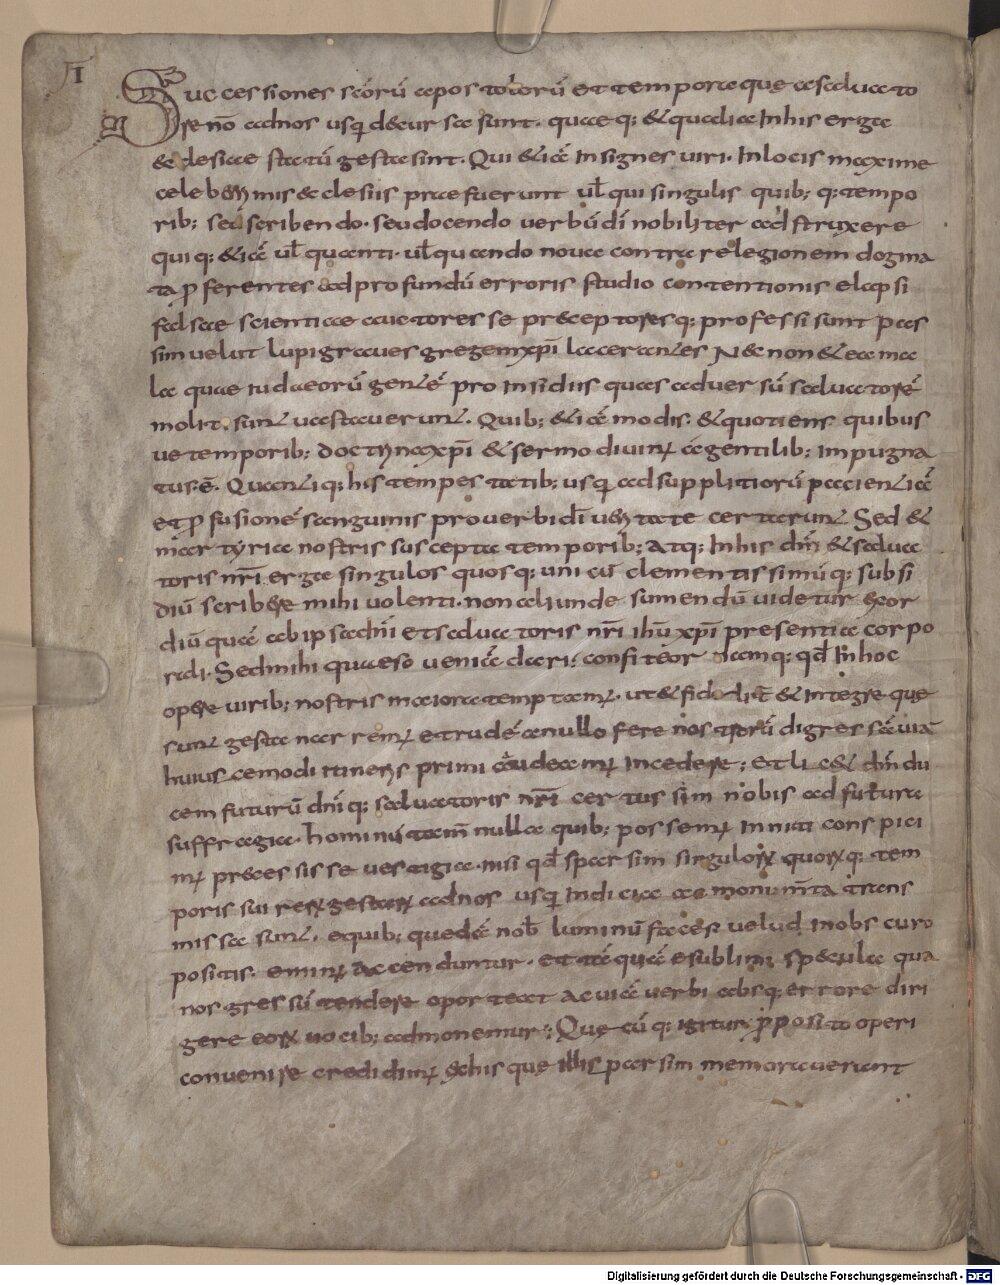 I
Successiones scōrū apostolorū et tempora que a saluato
re nō adnos usq; decursa sunt. quae q; & qualia Inhis erga
ecclesiae statū gesta sint. Qui & iā Insignes uiri. Inlocis maxime
celeberrimis ecclesiis praefuerunt ut̄ qui singulis quib; q; tempo
rib; seu scribendo. seu docendo uerbū dī nobiliter adstruxere
qui q; & iā ut̄ quanti. ut̄ quando noua contra relegionem dogma
ta ꝓferentes ad profundū erroris studio contentionis elapsi
falsae scientiae auctores se preceptores q; professi sunt pas
sim uelut lupi graues gregem xp̄i lacerantes Nec non & ea ma
la quae iudaeorū gentē pro Insidiis quas aduersū saluatorē
molit. sunt uastauerunt. Quib; & iā modis. & quotiens quibus
ue temporib; doctrina xp̄i & sermo diuinus a gentilib; Impugna
tus ē. Quanti q; his tempestatib; usq; ad supplitiorū pacientiā
et ꝓfusionē sanguinis pro uerbi dī ueritate certarunt Sed &
martyria nostris suscepta temporib; Atq; Inhis dn̄i & salua
toris nr̄i erga singulos quosq; unicū clementissimū q; subsi
diū scribere mihi uolenti. non aliunde sumendū uidetur exor
diū quā ab ipsa dn̄i et saluatoris nr̄i ihū xp̄i presentia corpo
rali. Sed mihi quaeso ueniā dari. confiteor namq; qd̄ Inhoc
opere uirib; nostris maiora temptamus. ut & fideliter & Integre que
sunt gesta narremus et rudē anullo fere nostrorū digressā uiā
huiuscemodi itineris primi audeamus Incedere; et licet dn̄m du
cem futurū dn̄i q; saluatoris nr̄i certus sim nobis ad futura
suffragia. hominū tam̄ nulla quib; possemus Inniti conspici
mus precessisse uestigia. nisi qd̄ sparsim singulorum quorumq; tem
poris sui rerum gestarum adnos usq; Indicia ac monum̄ta trans
missa sunt. equib; quedā nob̄ luminū faces uelud Inobscuro
positis. eminus accenduntur. et tāquā e sublimi specula qua
nos gressū tendere oporteat ac uiā uerbi absq; errore diri
gere eorum uocib; admonemur; Que cūq; igitur ꝓposito operi
conuenire credidimus ex his que illis parsim memorauerunt
Digitalisierung gefördert durch die Deutsche Forschungsgemeinschaft - DFG